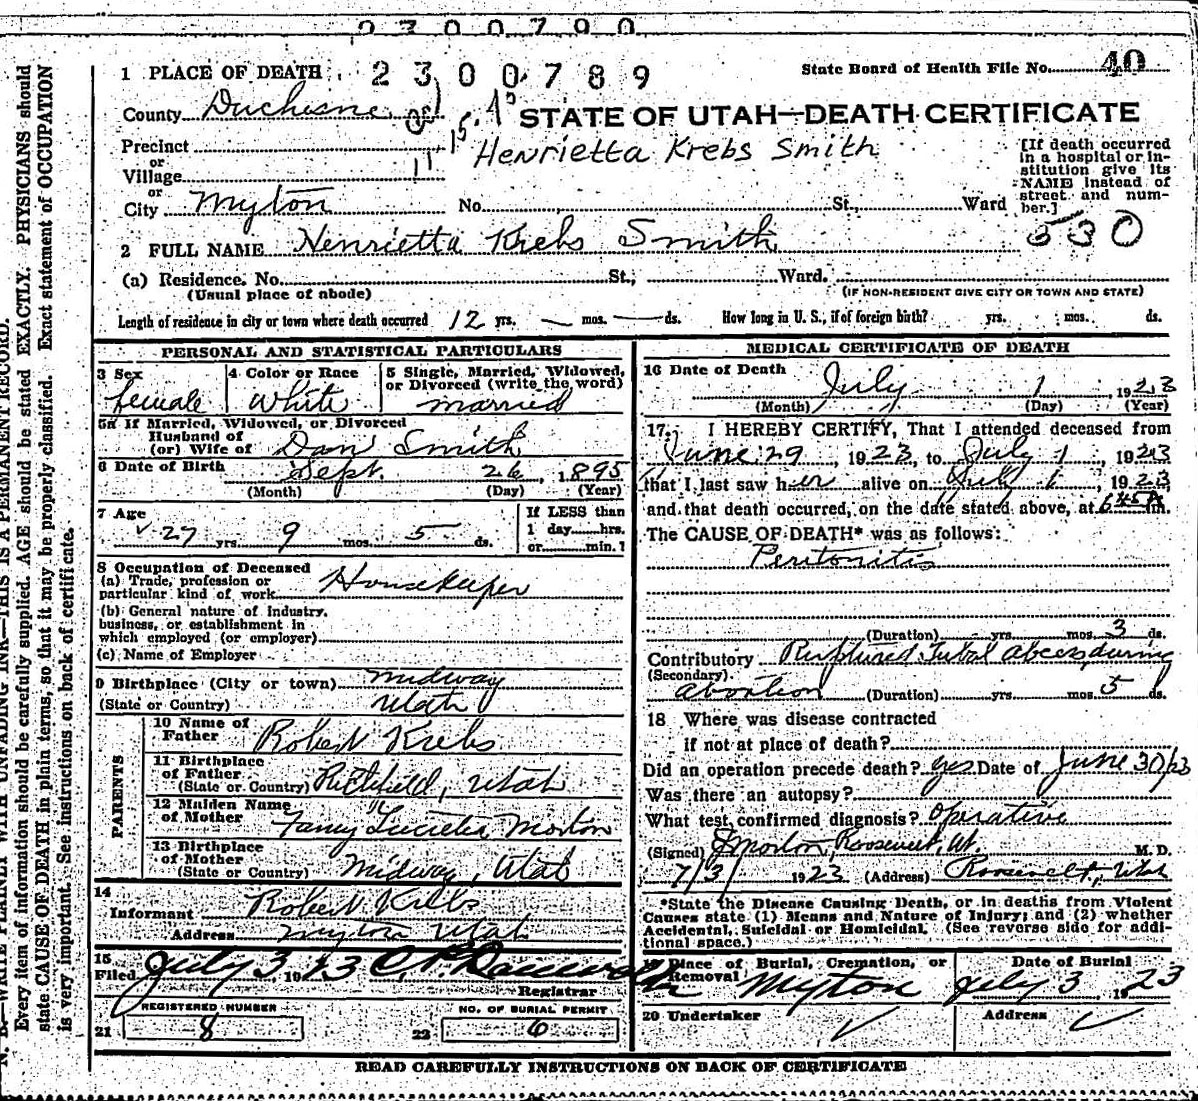 2 3 0 0 7 9 0
1 PLACE OF DEATH 2 3 0 0 7 8 9 State Board of Health File No. 40
County Duchesne
STATE OF UTAH—DEATH CERTIFICATE
Precinct
or
Village 11
or
City Myton No. St., Ward
Henrietta Krebs Smith
[If death occurred
in a hospital or in-
stitution give its
NAME instead of
street and num-
ber.]
530
2 FULL NAME Henrietta Krebs Smith
(a) Residence. No. St., Ward.
(Usual place of abode) (IF NON-RESIDENT GIVE CITY OR TOWN AND STATE)
Length of residence in city or town where death occurred 12 yrs. — mos. — ds. How long in U. S., if of foreign birth? yrs. mos. ds.
PERSONAL AND STATISTICAL PARTICULARS
3 Sex female
4 Color or Race White
5 Single, Married, Widowed,
or Divorced (write the word)
married
5a If Married, Widowed, or Divorced
Husband of
(or) Wife of Dan Smith
6 Date of Birth Sept. 26, 1895
(Month) (Day) (Year)
7 Age If LESS than
27 yrs. 9 mos. 5 ds. 1 day hrs.
or min.?
8 Occupation of Deceased
(a) Trade, profession or
particular kind of work Housekeeper
(b) General nature of Industry,
business, or establishment in
which employed (or employer)
(c) Name of Employer
9 Birthplace (City or town) Midway
(State or Country) Utah
PARENTS
10 Name of
Father Robert Krebs
11 Birthplace
of Father
(State or Country) Richfield, Utah
12 Maiden Name
of Mother Fanny Lucretia Morton
13 Birthplace
of Mother
(State or Country) Midway, Utah
14
Informant Robert Krebs
Address Myton Utah
15
Filed July 3, 1923
Registrar
REGISTERED NUMBER NO. OF BURIAL PERMIT
21 8 22 6
MEDICAL CERTIFICATE OF DEATH
16 Date of Death July 1, 1923
(Month) (Day) (Year)
17. I HEREBY CERTIFY, That I attended deceased from
June 29, 1923, to July 1, 1923
that I last saw her alive on July 1, 1923,
and that death occurred, on the date stated above, at 6 45 A m.
The CAUSE OF DEATH* was as follows:
Peritonitis
(Duration) yrs. mos. 3 ds.
Contributory Ruptured Tubal Abcess during
(Secondary)
abortion (Duration) yrs. mos. 5 ds.
18 Where was disease contracted
if not at place of death?
Did an operation precede death? yes Date of June 30/23
Was there an autopsy?
What test confirmed diagnosis? Operative
(Signed) J Morton, Roosevelt, Ut. M. D.
7/3/ 1923 (Address) Roosevelt, Utah
*State the Disease Causing Death, or in deaths from Violent
Causes state (1) Means and Nature of Injury; and (2) whether
Accidental, Suicidal or Homicidal. (See reverse side for addi-
tional space.)
19 Place of Burial, Cremation, or
Removal Myton
Date of Burial
July 3, 1923
20 Undertaker Address
READ CAREFULLY INSTRUCTIONS ON BACK OF CERTIFICATE
N. B.—WRITE PLAINLY WITH UNFADING INK—THIS IS A PERMANENT RECORD.
Every item of information should be carefully supplied. AGE should be stated EXACTLY. PHYSICIANS should
state CAUSE OF DEATH in plain terms, so that it may be properly classified. Exact statement of OCCUPATION
is very important. See instructions on back of certificate.